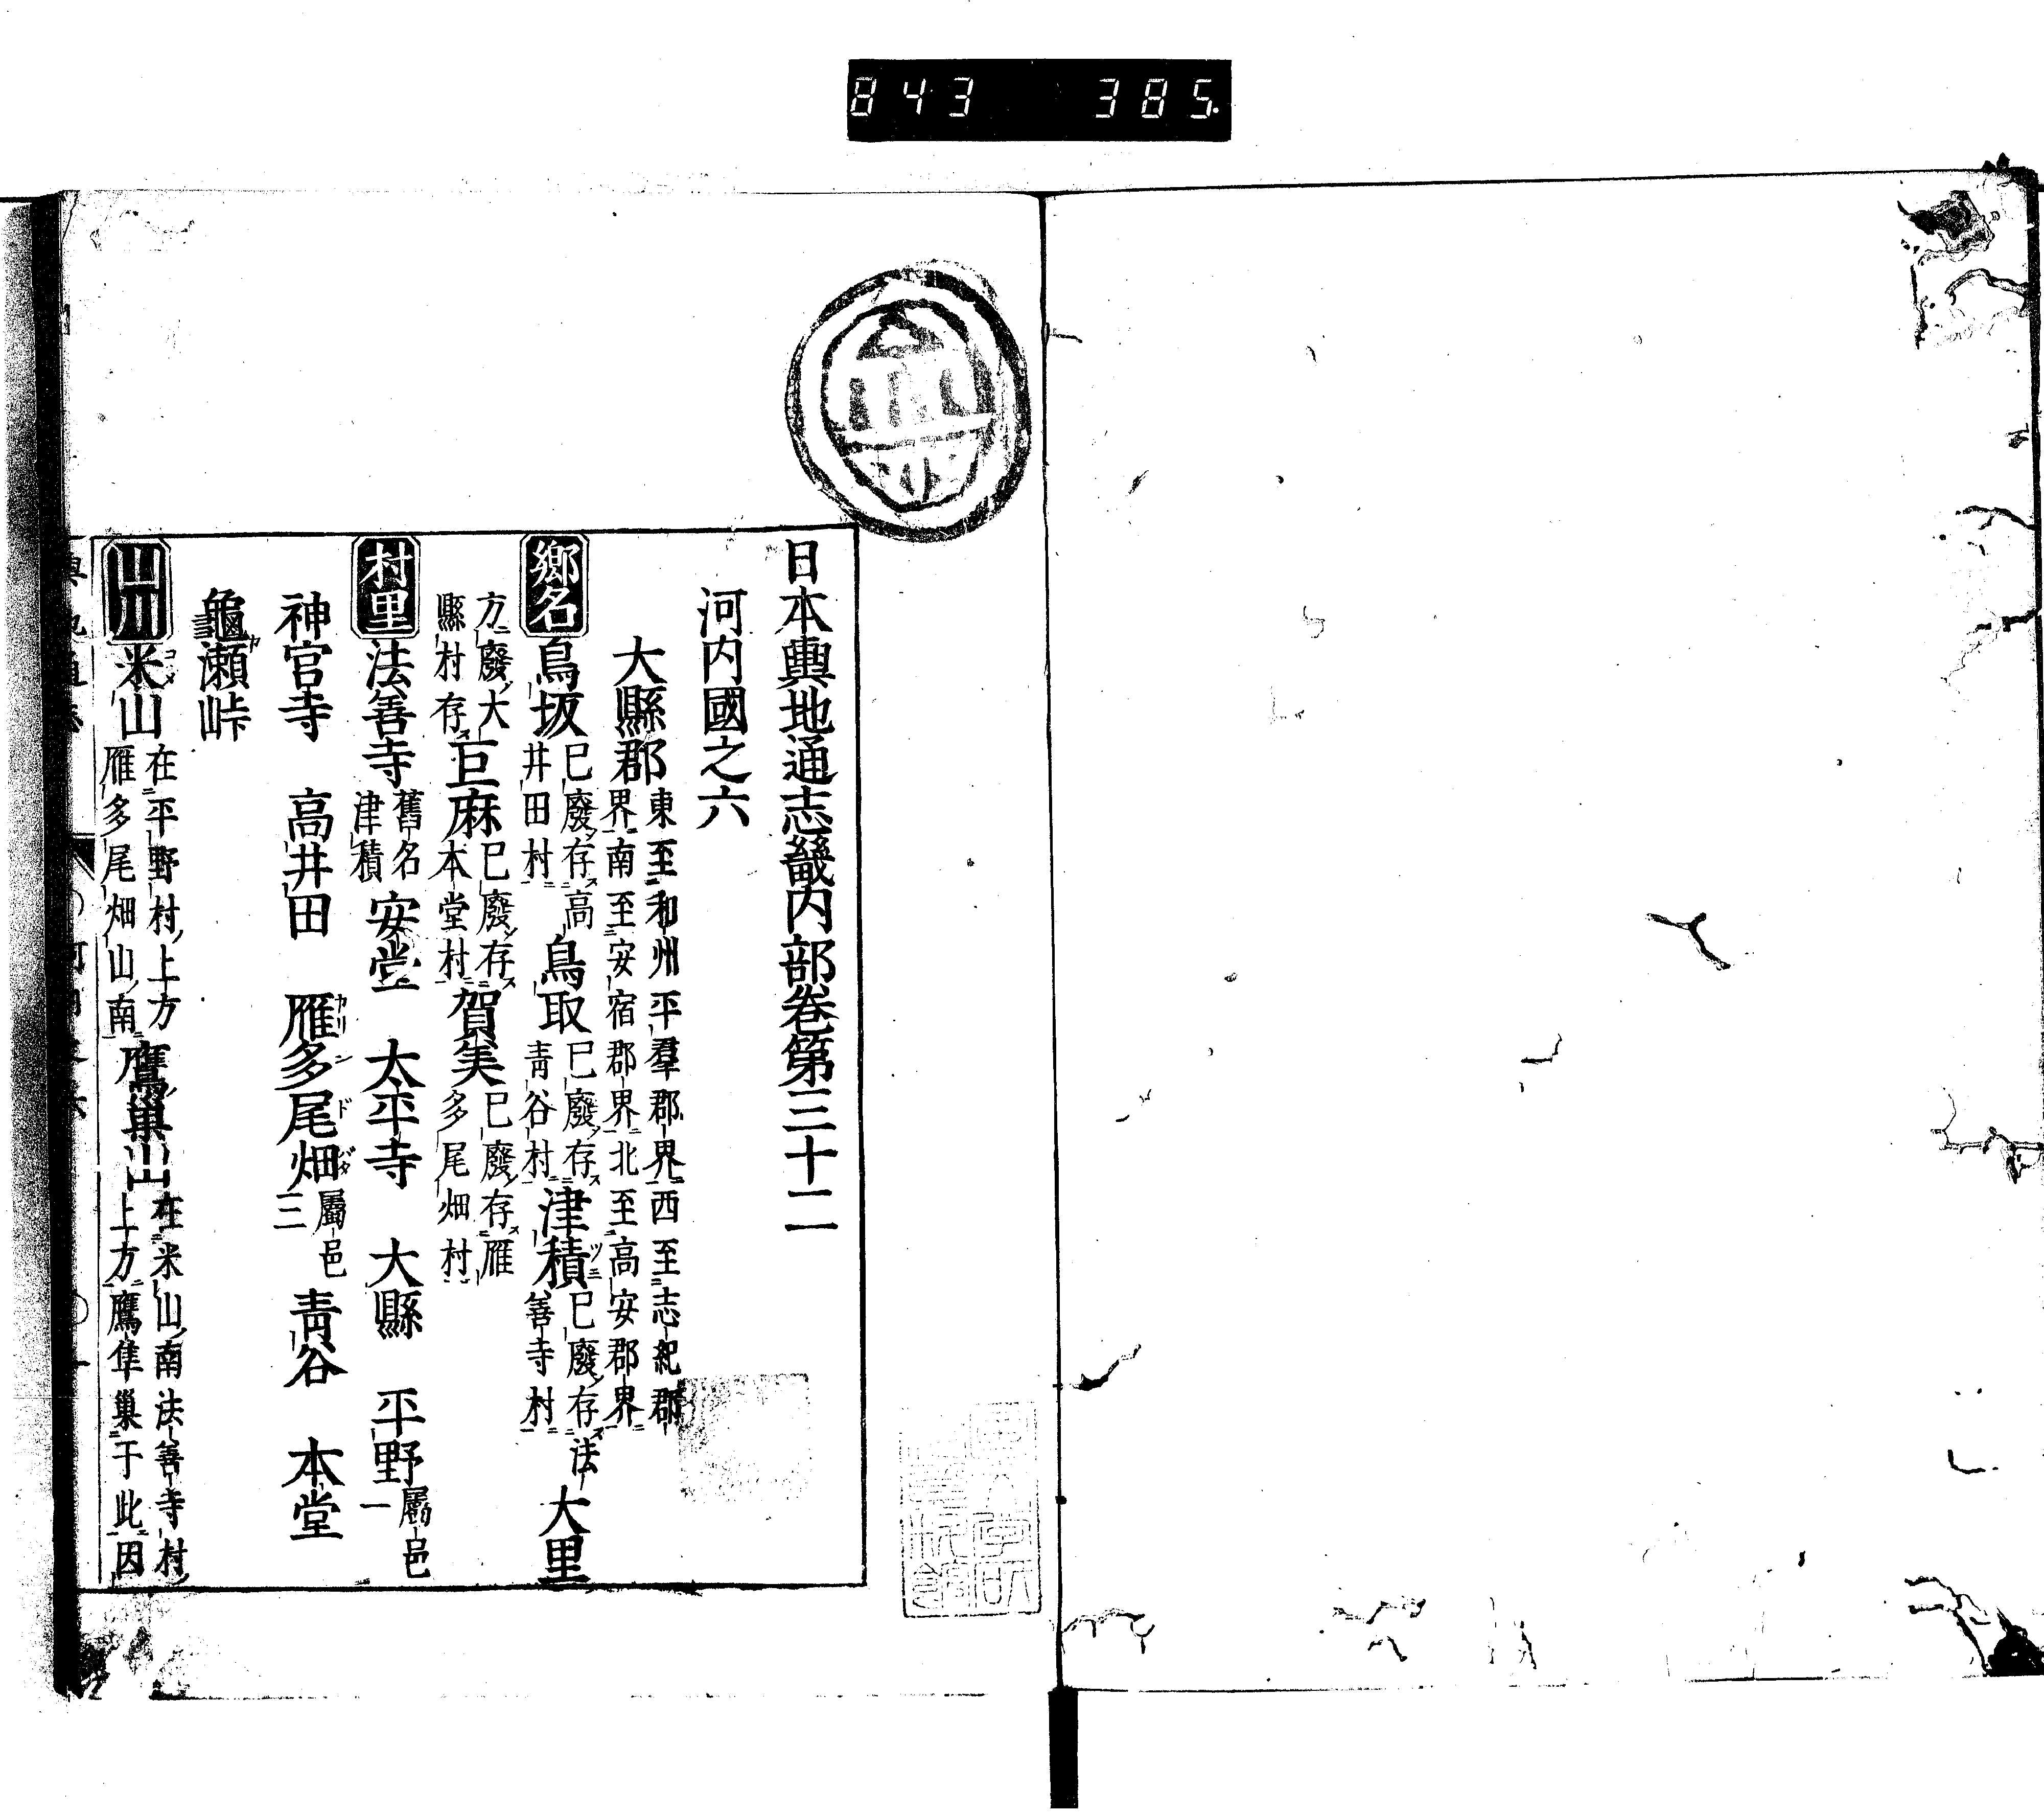 843 385
日本輿地通志畿内部巻第三十二
河内國之六
大縣郡 東至和州平羣郡界西至志紀郡
界南至安宿郡界北至高安郡界
鄉名 鳥坂 已廢存高
井田村 鳥取 已廢存
青谷村 津積 ツミ 已廢存法
善寺村 大里
方廢大
縣村存 巨麻 已廢存
本堂村 賀美 已廢存雁
多尾畑村
村里 法善寺 舊名
津積 安堂 太平寺 大縣 平野 屬邑
一
神宮寺 高井田 雁多尾畑 カリンドバタ 屬邑
三 青谷 本堂
龜瀬峠
山川 米山 在平野村上方
雁多尾畑山南 鷹巢山 在米山南法善寺村
上方鷹隼巢于此因